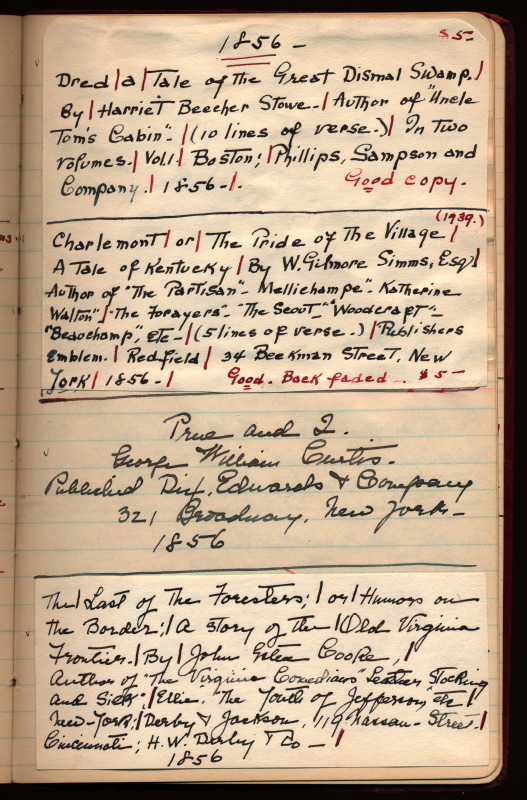 1856 - $5=
Dred | a | Tale of the Great Dismal Swamp. |
By | Harriet Beecher Stowe. | Author of "Uncle
Tom's Cabin". | (10 lines of verse.) | In Two
volumes. | Vol. 1. | Boston; | Phillips, Sampson and
Company. | 1856 - |. Good copy.
(1939.)
Charlemont | or | The Pride of The Village |
A Tale of Kentucky | By W. Gilmore Simms, Esq |
Author of "The Partisan" - Mellichampe" - Katherine
Walton" - | "The Forayers" - "The Scout" - "Woodcraft" -
"Beauchamp", Etc - | (5 lines of verse.) | Publishers
Emblem. | Redfield | 34 Beekman Street, New
York | 1856 - | Good. Back faded - $5 -
Prue and I.
George William Curtis.
Published Dix, Edwards & Company
321 Broadway, New York -
1856
The | Last of The Foresters; | or | Humors on
the Border; | A story of the | Old Virginia
Frontier. | By | John Esten Cooke, |
Author of "The Virginia Comedians Leather Stocking
and Silk", | Ellie. "The Youth of Jefferson", etc |
New-York: | Derby & Jackson, 119 Nassau - Street. |
Cincinnati; H.W. Derby & Co - |
1856